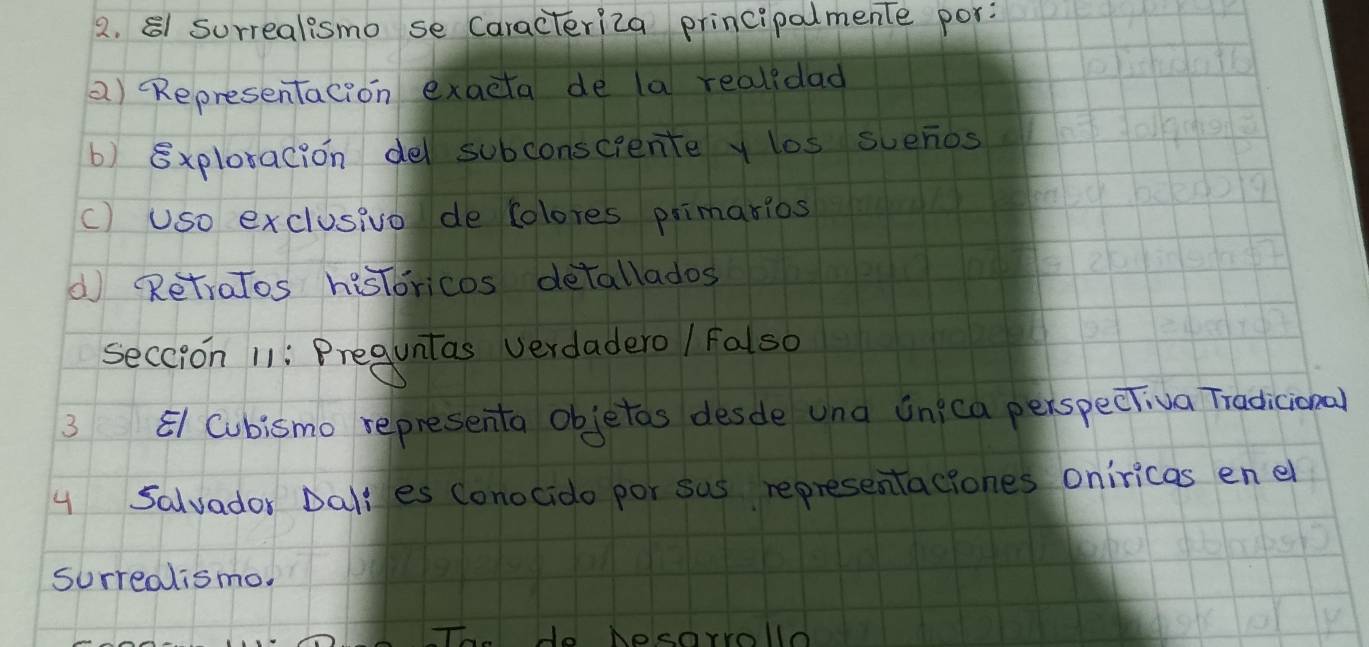 2. El Surrealismo se Caracteriza principalmente por:
a) Representación exacta de la realidad
b) Exploración del subconsciente y los sueños
c) Uso exclusivo de Colores primarios
d) Retratos históricos detallados
sección 11: Preguntas verdadero / Falso
3 El Cubismo representa Objetas desde una única perspectiva Tradicional
4 Salvador Dalí es Conocido por sus representaciones oníricas en el
surrealismo.
de Desarrollo